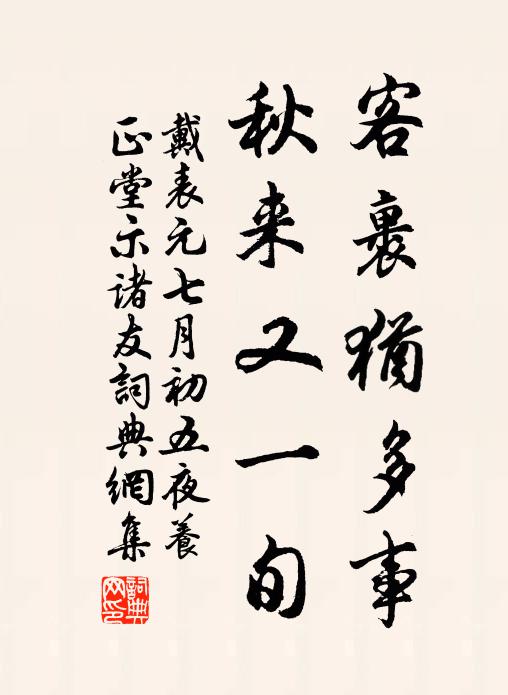 客裹猶多事
秋来又一旬
戴表元七月初五夜養
正堂示諸友詞典網集
詞典網印